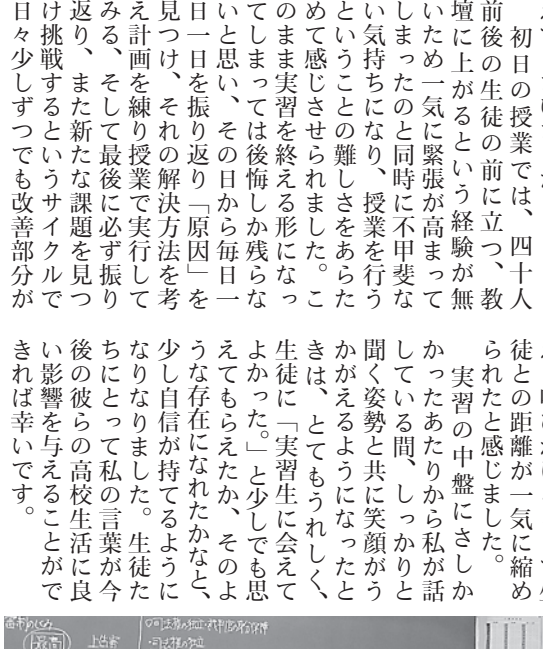 初日の授業では、四十人
前後の生徒の前に立つ、教
壇に上がるという経験が無
いため一気に緊張が高まって
しまったのと同時に不甲斐な
い気持ちになり、授業を行う
ということの難しさをあらた
めて感じさせられました。こ
のまま実習を終える形になっ
てしまっては後悔しか残らな
いと思い、その日から毎日一
日一日を振り返り「原因」を
見つけ、それの解決方法を考
え計画を練り授業で実行して
みる、そして最後に必ず振り
返り、また新たな課題を見つ
け挑戦するというサイクルで
日々少しずつでも改善部分が
徒との距離が一気に縮め
られたと感じました。
実習の中盤にさしか
かったあたりから私が話
している間、しっかりと
聞く姿勢と共に笑顔がう
かがえるようになったと
きは、とてもうれしく、
生徒に「実習生に会えて
よかった。」と少しでも思
えてもらえたか、そのよ
うな存在になれたかなと、
少し自信が持てるように
なりなりました。生徒た
ちにとって私の言葉が今
後の彼らの高校生活に良
い影響を与えることがで
きれば幸いです。
最高
上告審
・司法権の独立